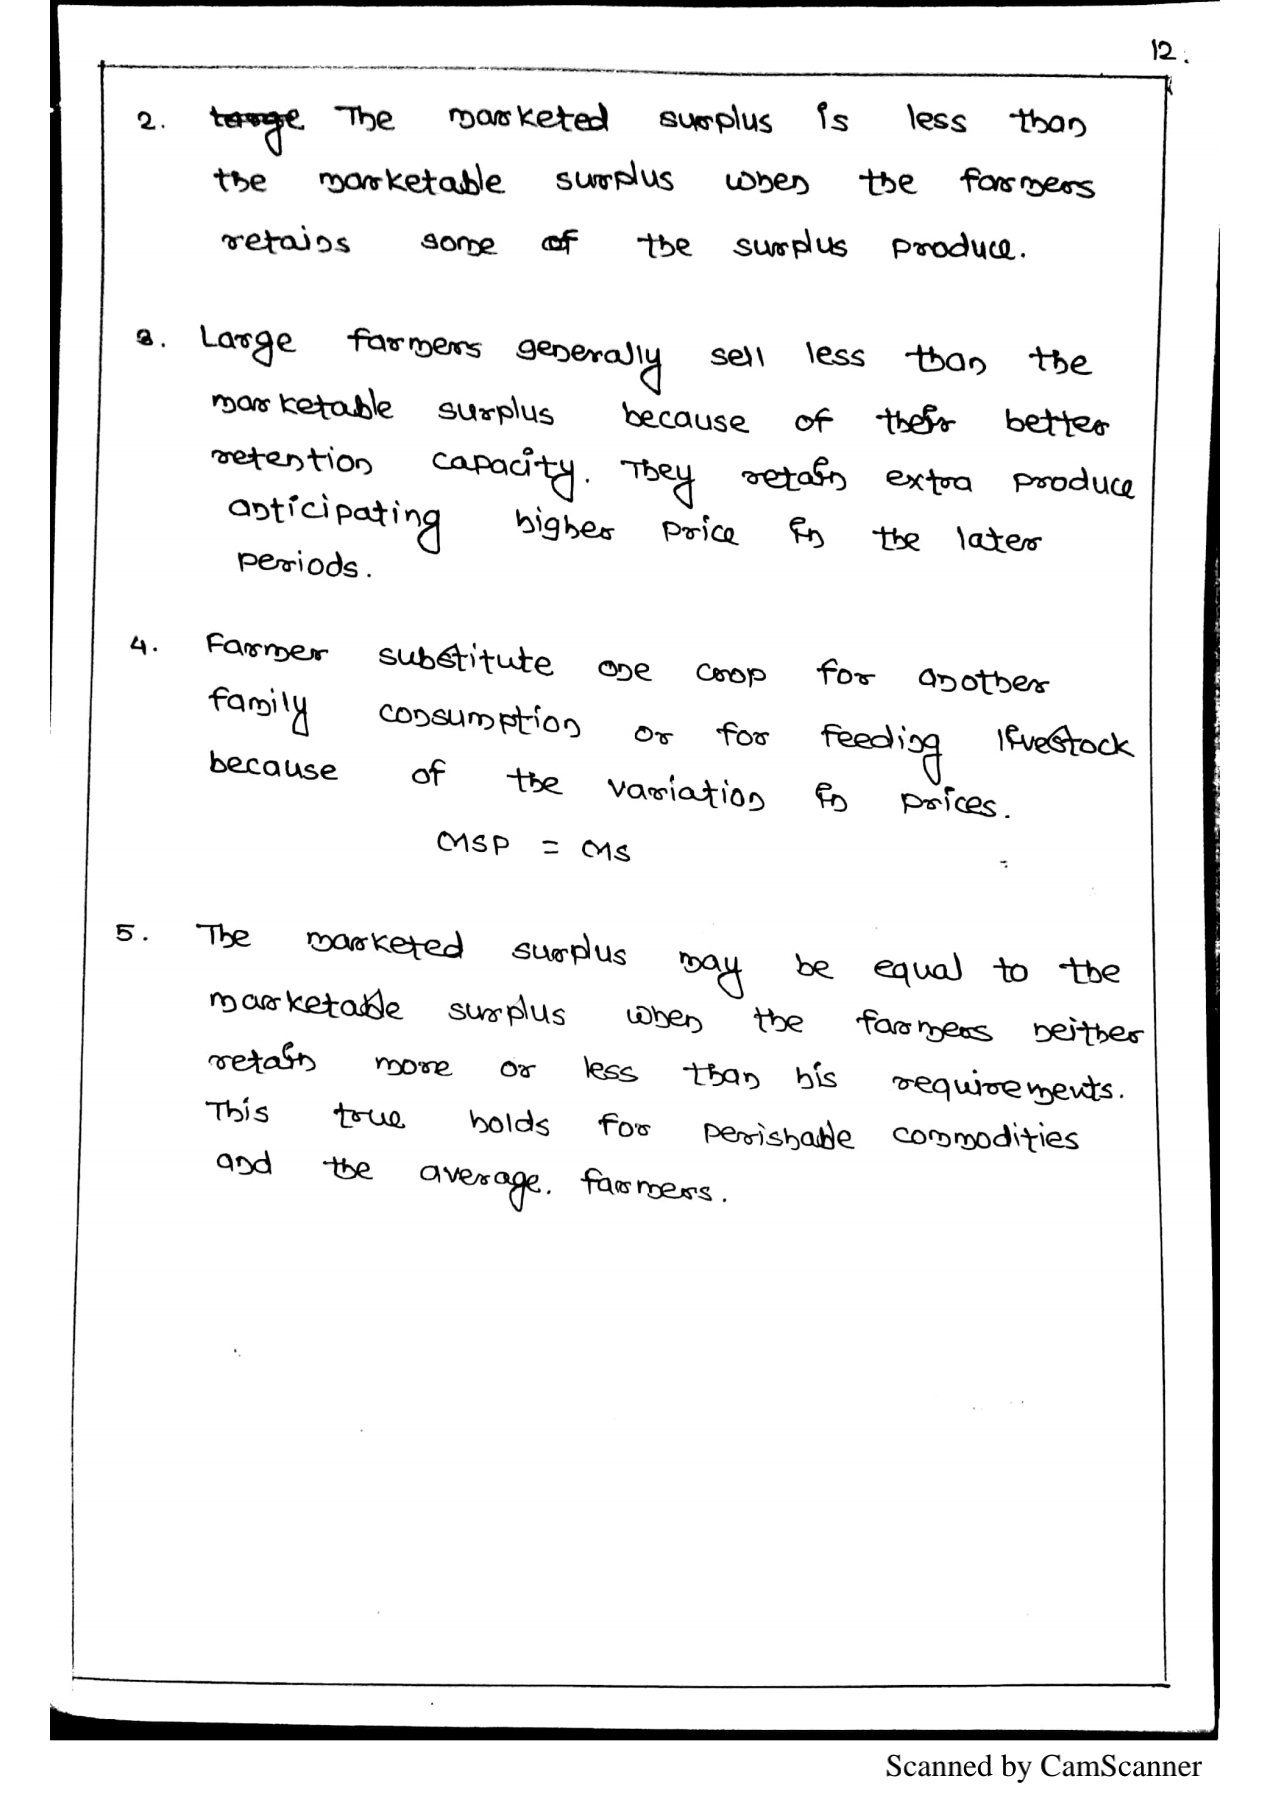 12.
2. large The marketed surplus is less than
the marketable surplus when the farmers
retains some of the surplus produce.
3. Large farmers generally sell less than the
marketable surplus because of their better
retention capacity. They retain extra produce
anticipating higher price in the later
periods.
4. Farmer substitute one crop for another
family consumption or for feeding livestock
because of the variation in prices.
MSP = MS
5. The marketed surplus may be equal to the
marketable surplus when the farmers neither
retain more or less than his requirements.
This true holds for perishable commodities
and the average. farmers.
Scanned by CamScanner